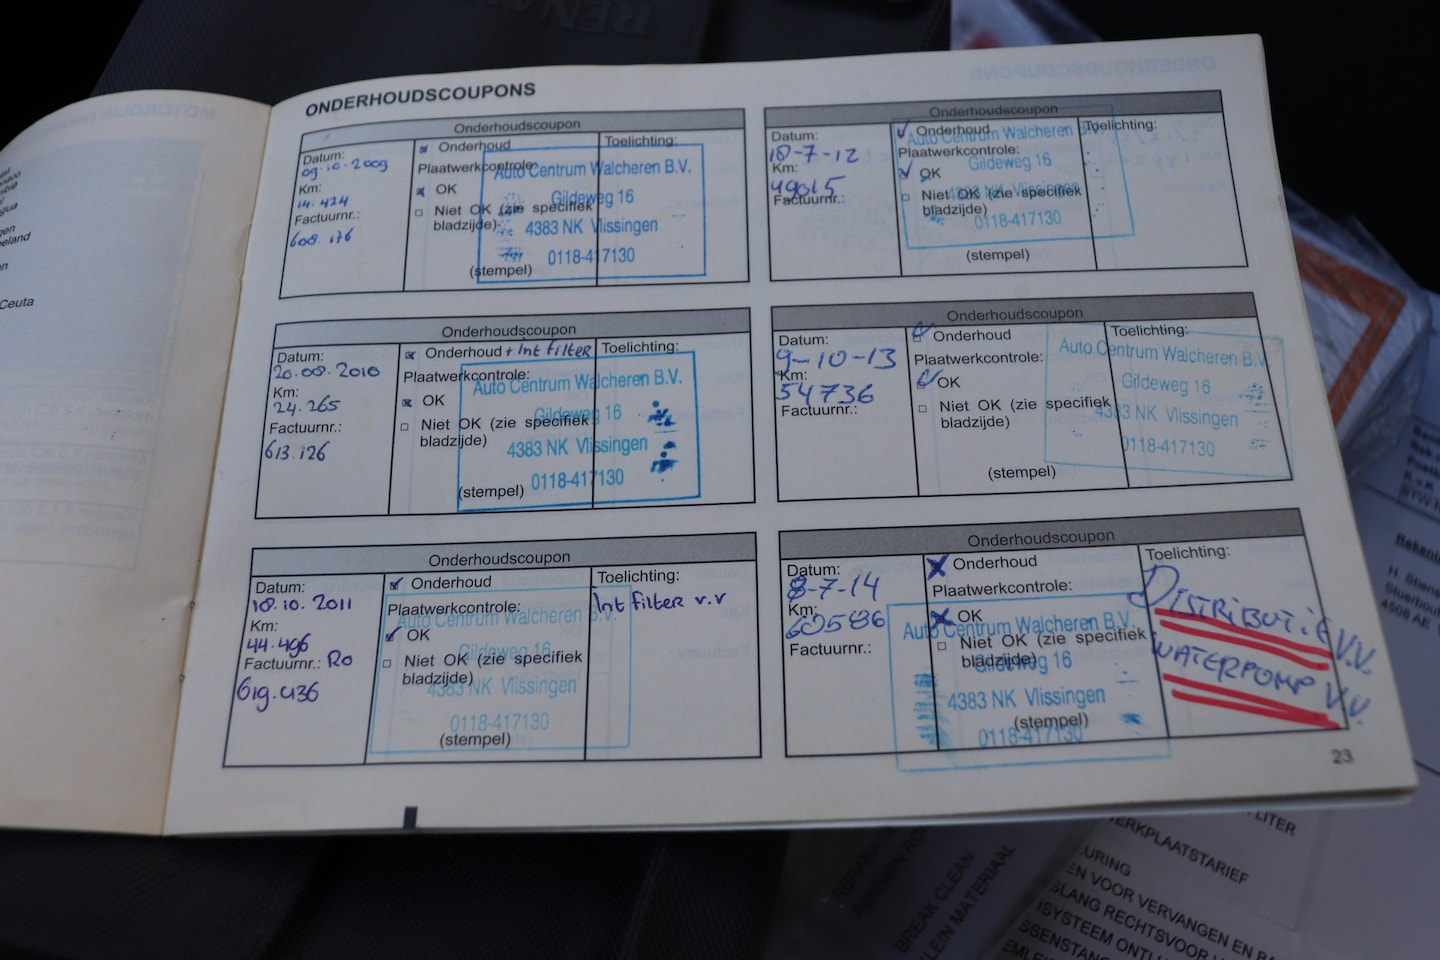 RENAU
MOTOROLIE
Ceuta
ONDERHOUDSCOUPONS
Onderhoudscoupon
Datum:
09.10.2009
Km:
14.424
Factuurnr.:
608.176
Onderhoud
Plaatwerkcontrole:
OK
Niet OK (zie specifiek
bladzijde)
(stempel)
Toelichting:
Auto Centrum Walcheren B.V.
Gildeweg 16
4383 NK Vlissingen
0118-417130
Onderhoudscoupon
Datum:
20.08.2010
Km:
24.265
Factuurnr.:
613.126
Onderhoud + Int filter
Plaatwerkcontrole:
OK
Niet OK (zie specifiek
bladzijde)
(stempel)
Toelichting:
Auto Centrum Walcheren B.V.
Gildeweg 16
4383 NK Vlissingen
0118-417130
Onderhoudscoupon
Datum:
18.10.2011
Km:
44.496
Factuurnr.: Ro
619.436
Onderhoud
Plaatwerkcontrole:
OK
Niet OK (zie specifiek
bladzijde)
(stempel)
Toelichting:
Int filter v.v
Auto Centrum Walcheren B.V.
Gildeweg 16
4383 NK Vlissingen
0118-417130
Onderhoudscoupon
Datum:
18-7-12
Km:
49015
Factuurnr.:
Onderhoud
Plaatwerkcontrole:
OK
Niet OK (zie specifiek
bladzijde)
(stempel)
Toelichting:
Auto Centrum Walcheren B.V.
Gildeweg 16
4383 NK Vlissingen
0118-417130
Onderhoudscoupon
Datum:
9-10-13
Km:
54736
Factuurnr.:
Onderhoud
Plaatwerkcontrole:
OK
Niet OK (zie specifiek
bladzijde)
(stempel)
Toelichting:
Auto Centrum Walcheren B.V.
Gildeweg 16
4383 NK Vlissingen
0118-417130
Onderhoudscoupon
Datum:
8-7-14
Km:
Factuurnr.:
Onderhoud
Plaatwerkcontrole:
OK
Niet OK (zie specifiek
bladzijde)
(stempel)
Toelichting:
DISTRIBUTIE V.V.
WATERPOMP V.V.
Auto Centrum Walcheren B.V.
Gildeweg 16
4383 NK Vlissingen
0118-417130
23
LITER
ERKPLAATSTARIEF
EN VOOR VERVANGEN EN
SLANG RECHTSVOOR
BREAK CLEAN
LEIN MATERIAAL
4508 AE